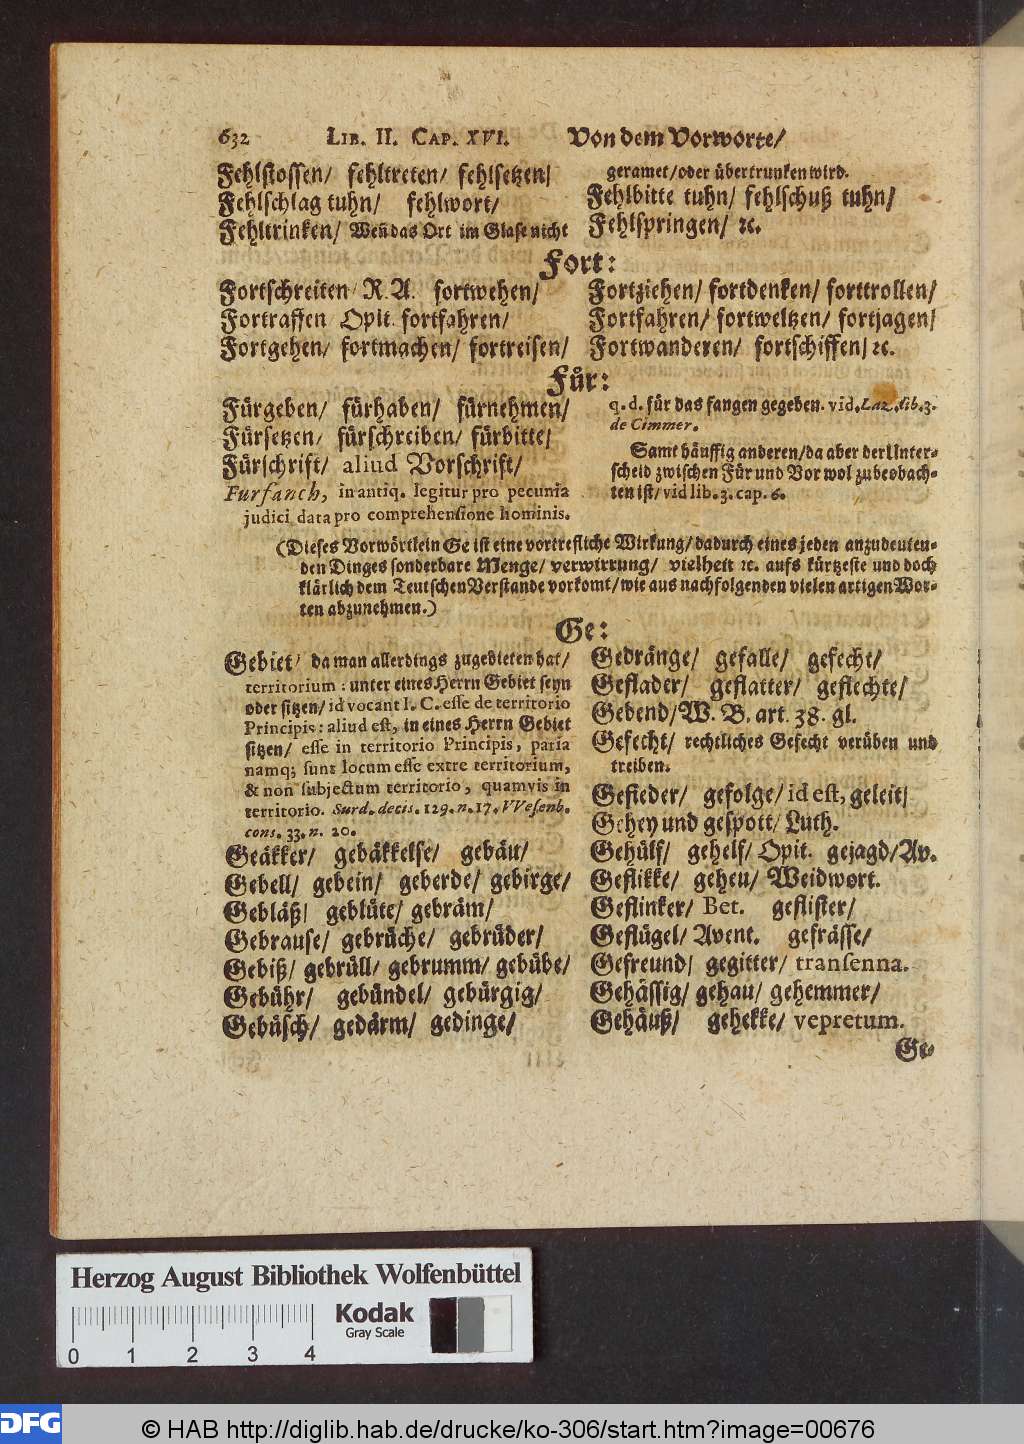 632 LIB. II. CAP. XVI. Von dem Vorworte/
Fehlstossen/ fehltreten/ fehlsetzen/
Fehlschlag tuhn/ fehlwort/
Fehltrinken/ Weñ das Ort im Glase nicht
geramet/ oder übertrunken wird.
Fehlbitte tuhn/ fehlschuß tuhn/
Fehlspringen/ ꝛc.
Fort:
Fortschreiten/ R. A. fortwehen/
Fortraffen Opit. fortfahren/
Fortgehen/ fortmachen/ fortreisen/
Fortziehen/ fortdenken/ forttrollen/
Fortfahren/ fortweltzen/ fortjagen/
Fortwanderen/ fortschiffen/ ꝛc.
Für:
Fürgeben/ fürhaben/ fürnehmen/
Fürsetzen/ fürschreiben/ fürbitte/
Fürschrift/ aliud Vorschrift/
Furfanch, in antiq. legitur pro pecunia
judici data pro comprehensione hominis.
q. d. für das fangen gegeben. vid. Laz. lib. 3.
de Cimmer.
Samt häuffig anderen/ da aber der Unter-
scheid zwischen Für und Vor wol zubeobach-
ten ist/ vid lib. 3. cap. 6.
(Dieses Vorwörtlein Ge ist eine vortrefliche Wirkung/ dadurch eines jeden anzudeuten-
den Dinges sonderbare Menge/ verwirrung/ vielheit ꝛc. aufs kürtzeste und doch
klärlich dem Teutschen Verstande vorkomt/ wie aus nachfolgenden vielen artigen Wor-
ten abzunehmen.)
Ge:
Gebiet/ da man allerdings zugebieten hat/
territorium: unter eines Herrn Gebiet seyn
oder sitzen/ id vocant I. C. esse de territorio
Principis: aliud est, in eines Herrn Gebiet
sitzen/ esse in territorio Principis, paria
namq; sunt locum esse extre territorium,
& non subjectum territorio, quamvis in
territorio. Surd. decis. 129. n. 17. VVesenb.
cons. 33. n. 20.
Geäkker/ gebäkkelse/ gebäu/
Gebell/ gebein/ geberde/ gebirge/
Gebläß/ geblüte/ gebräm/
Gebrause/ gebrüche/ gebrüder/
Gebiß/ gebrüll/ gebrumm/ gebübe/
Gebühr/ gebündel/ gebürgig/
Gebüsch/ gedärm/ gedinge/
Gedränge/ gefalle/ gefecht/
Geflader/ geflatter/ geflechte/
Gebend/ W. B. art. 38. gl.
Gefecht/ rechtliches Gefecht verüben und
treiben.
Gefieder/ gefolge/ id est, geleit/
Gehey und gespott/ Luth.
Gehülf/ gehelf/ Opit. gejagd/ Av.
Geflikke/ geheu/ Weidwort.
Geflinker/ Bet. geflister/
Geflügel/ Avent. gefrässe/
Gefreund/ gegitter/ transenna.
Gehässig/ gehau/ gehemmer/
Gehäuß/ gehekke/ vepretum.
Ge-
Herzog August Bibliothek Wolfenbüttel
Kodak
Gray Scale
0 1 2 3 4
DFG © HAB http://diglib.hab.de/drucke/ko-306/start.htm?image=00676